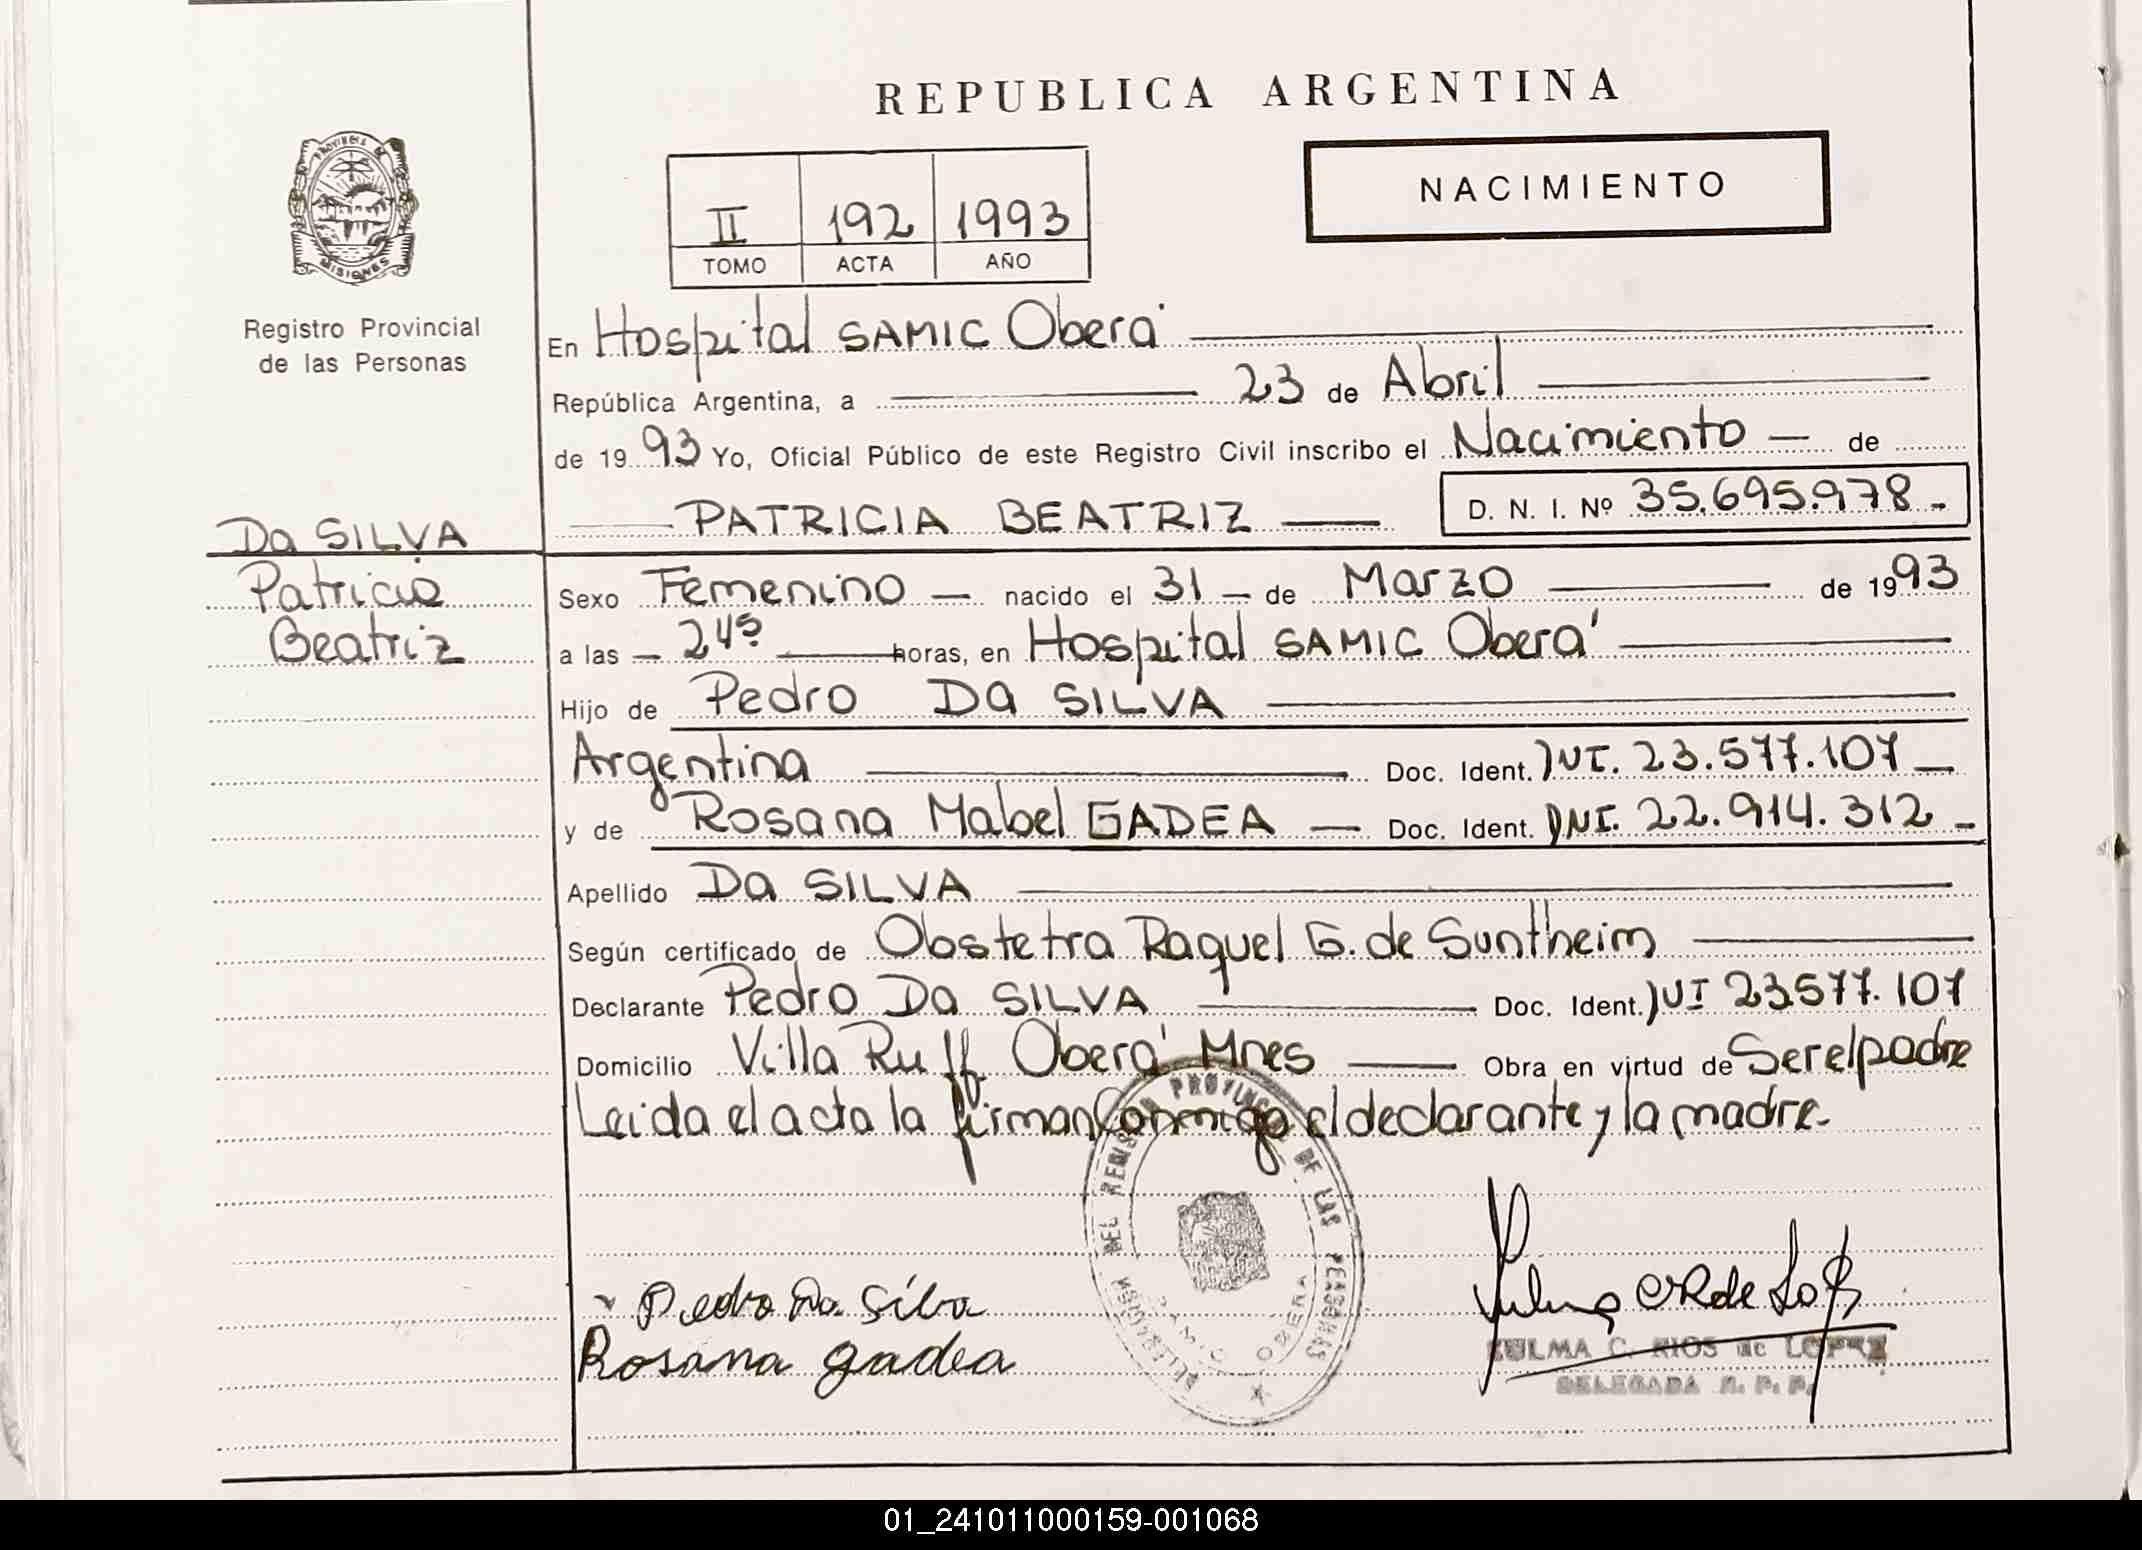 REPUBLICA ARGENTINA
PROVINCIA DE
MISIONES
Registro Provincial
de las Personas
II 192 1993
TOMO ACTA AÑO
NACIMIENTO
En Hospital SAMIC Oberá
República Argentina, a 23 de Abril
de 1993 Yo, Oficial Público de este Registro Civil inscribo el Nacimiento — de
PATRICIA BEATRIZ — D. N. I. Nº 35.695.978.-
Da SILVA
Patricia
Beatriz
Sexo Femenino — nacido el 31 — de Marzo — de 1993
a las — 24s — horas, en Hospital SAMIC Oberá
Hijo de Pedro Da SILVA
Argentina — Doc. Ident. DNI. 23.577.107 —
y de Rosana Mabel GADEA — Doc. Ident. DNI. 22.914.312 -
Apellido Da SILVA
Según certificado de Obstetra Raquel G. de Suntheim
Declarante Pedro Da SILVA — Doc. Ident. DNI 23577.107
Domicilio Villa Ruff Oberá Mnes — Obra en virtud de Ser el padre
Leida el acta la firman conmigo el declarante y la madre.
DEL REGISTRO PROVINCIAL DE LAS PERSONAS
SAMIC OBERA
Pedro Da Silva
Rosana gadea
ZULMA C. RIOS de LOPEZ
DELEGADA R. P. P.
01_241011000159-001068